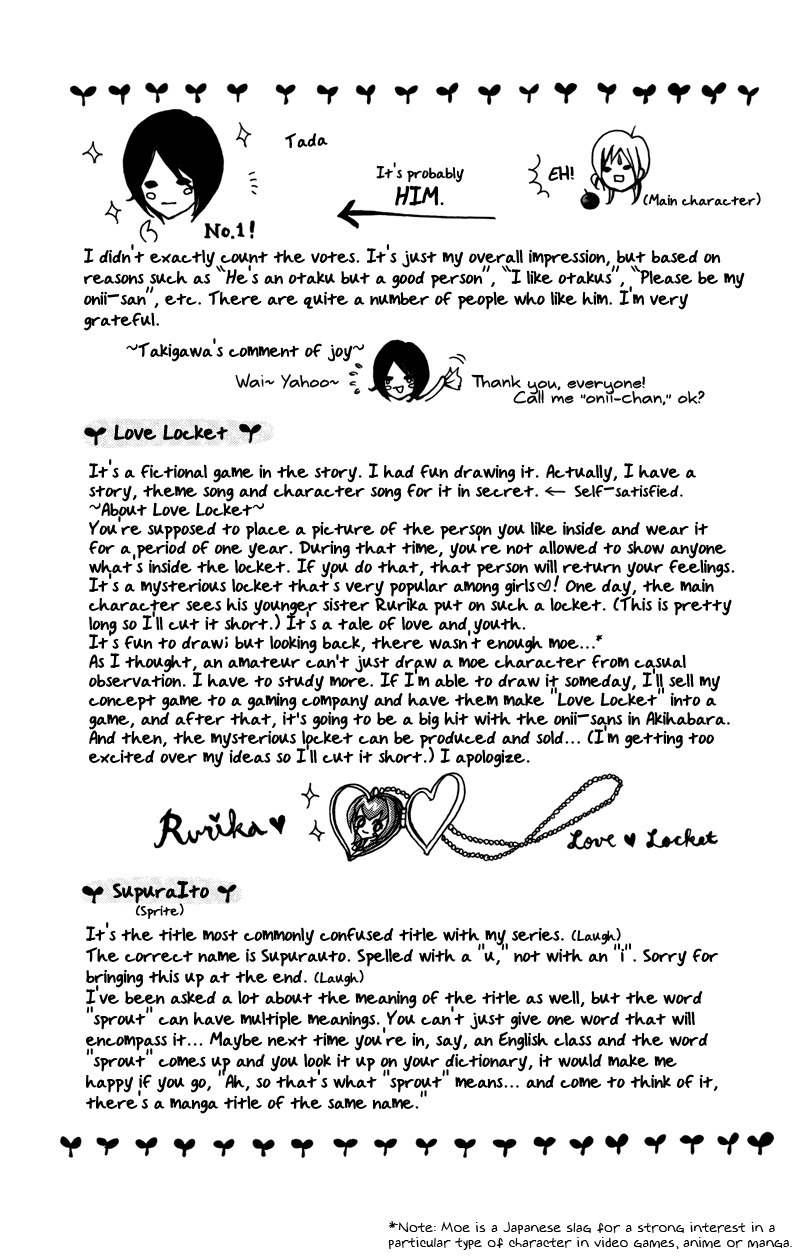 Tada
It's probably
HIM.
EH!
(Main character)
No.1!
I didn't exactly count the votes. It's just my overall impression, but based on
reasons such as "He's an otaku but a good person", "I like otakus", "Please be my
onii-san", etc. There are quite a number of people who like him. I'm very
grateful.
~Takigawa's comment of joy~
Wai~ Yahoo~
Thank you, everyone!
Call me "onii-chan," ok?
Love Locket
It's a fictional game in the story. I had fun drawing it. Actually, I have a
story, theme song and character song for it in secret. ← Self-satisfied.
~About Love Locket~
You're supposed to place a picture of the person you like inside and wear it
for a period of one year. During that time, you're not allowed to show anyone
what's inside the locket. If you do that, that person will return your feelings.
It's a mysterious locket that's very popular among girls♡! One day, the main
character sees his younger sister Rurika put on such a locket. (This is pretty
long so I'll cut it short.) It's a tale of love and youth.
It's fun to draw; but looking back, there wasn't enough moe...*
As I thought, an amateur can't just draw a moe character from casual
observation. I have to study more. If I'm able to draw it someday, I'll sell my
concept game to a gaming company and have them make "Love Locket" into a
game, and after that, it's going to be a big hit with the onii-sans in Akihabara.
And then, the mysterious locket can be produced and sold... (I'm getting too
excited over my ideas so I'll cut it short.) I apologize.
Rurika ♥
Love ♥ Locket
SupuraIto
(Sprite)
It's the title most commonly confused title with my series. (Laugh)
The correct name is Supurauto. Spelled with a "u," not with an "i". Sorry for
bringing this up at the end. (Laugh)
I've been asked a lot about the meaning of the title as well, but the word
"sprout" can have multiple meanings. You can't just give one word that will
encompass it... Maybe next time you're in, say, an English class and the word
"sprout" comes up and you look it up on your dictionary, it would make me
happy if you go, "Ah, so that's what "sprout" means... and come to think of it,
there's a manga title of the same name."
*Note: Moe is a Japanese slag for a strong interest in a
particular type of character in video games, anime or manga.